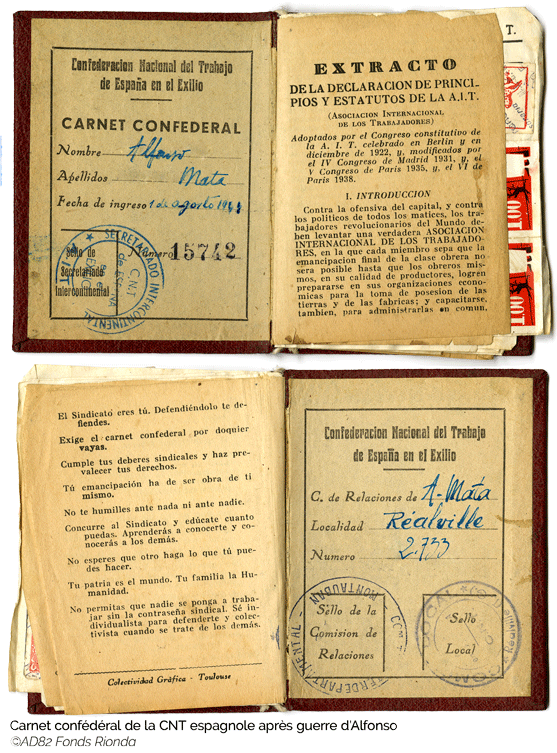 Confederacion Nacional del Trabajo
de España en el Exilio
CARNET CONFEDERAL
Nombre Alfonso
Apellidos Mata
Fecha de ingreso 1 de agosto
Numero 15742
Sello de
Secretariado
Intercontinental
SECRETARIADO INTERCONTINENTAL
CNT
EXTRACTO
DE LA DECLARACION DE PRINCI-
PIOS Y ESTATUTOS DE LA A.I.T.
(ASOCIACION INTERNACIONAL
DE LOS TRABAJADORES)
Adoptados por el Congreso constitutivo de
la A. I. T. celebrado en Berlin y en
diciembre de 1922, y, modificados por
el IV Congreso de Madrid 1931, y, el
V Congreso de Paris 1935, y, el VI de
Paris 1938.
I. INTRODUCCION
Contra la ofensiva del capital, y contra
los politicos de todos los matices, los tra-
bajadores revolucionarios del Mundo de-
ben levantar una verdadera ASOCIACION
INTERNACIONAL DE LOS TRABAJADO-
RES, en la que cada miembro sepa que la
emancipación final de la clase obrera no
sera posible hasta que los obreros mis-
mos, en su calidad de productores, logren
prepararse en sus organizaciones econo-
micas para la toma de posesión de las
tierras y de las fabricas; y capacitarse,
tambien, para administrarlas en comun,
T.
100
100
El Sindicato eres tú. Defendiéndolo te de-
fiendes.
Exige el carnet confederal por doquier
vayas.
Cumple tus deberes sindicales y haz pre-
valecer tus derechos.
Tú emancipación ha de ser obra de ti
mismo.
No te humilles ante nada ni ante nadie.
Concurre al Sindicato y edúcate cuanto
puedas. Aprenderás a conocerte y co-
nocerás a los demás.
No esperes que otro haga lo que tú pue-
des hacer.
Tu patria es el mundo. Tu familia la Hu-
manidad.
No permitas que nadie se ponga a traba-
jar sin la contraseña sindical. Sé in-
dividualista para defenderte y colec-
tivista cuando se trate de los demás.
Colectividad Gráfica - Toulouse
Confederacion Nacional del Trabajo
de España en el Exilio
C. de Relaciones de A-Mata
Localidad Réalville
Numero 2.733
Sello de la
Comision de
Relaciones
MONTAUBAN
Sello
Local
Carnet confédéral de la CNT espagnole après guerre d'Alfonso
©AD82 Fonds Rionda